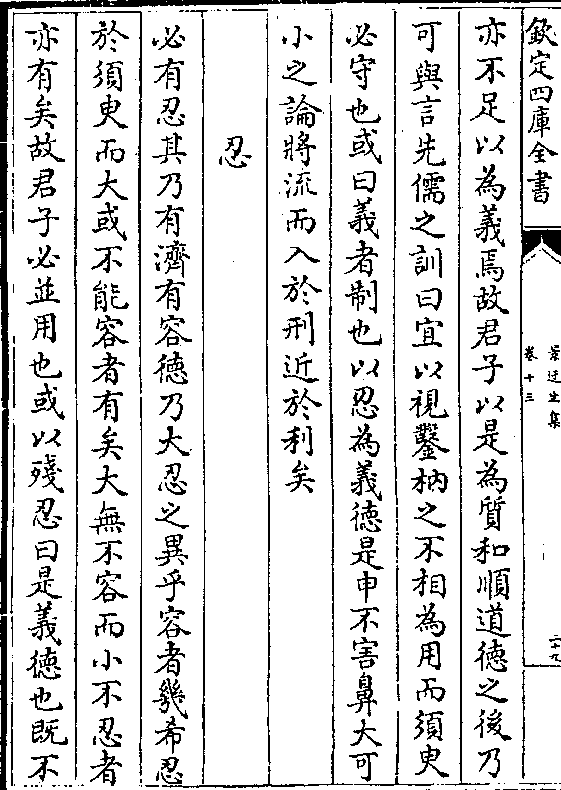 欽定四庫全書
景迂生集
卷十三
二十九
亦不足以為義焉故君子以是為質和順道德之後乃
可與言先儒之訓曰宜以視鑿枘之不相為用而須臾
必守也或曰義者制也以忍為義德是申不害鼻大可
小之論將流而入於刑近於利矣
忍
必有忍其乃有濟有容德乃大忍之異乎容者幾希忍
於須臾而大或不能容者有矣大無不容而小不忍者
亦有矣故君子必並用也或以殘忍曰是義德也既不